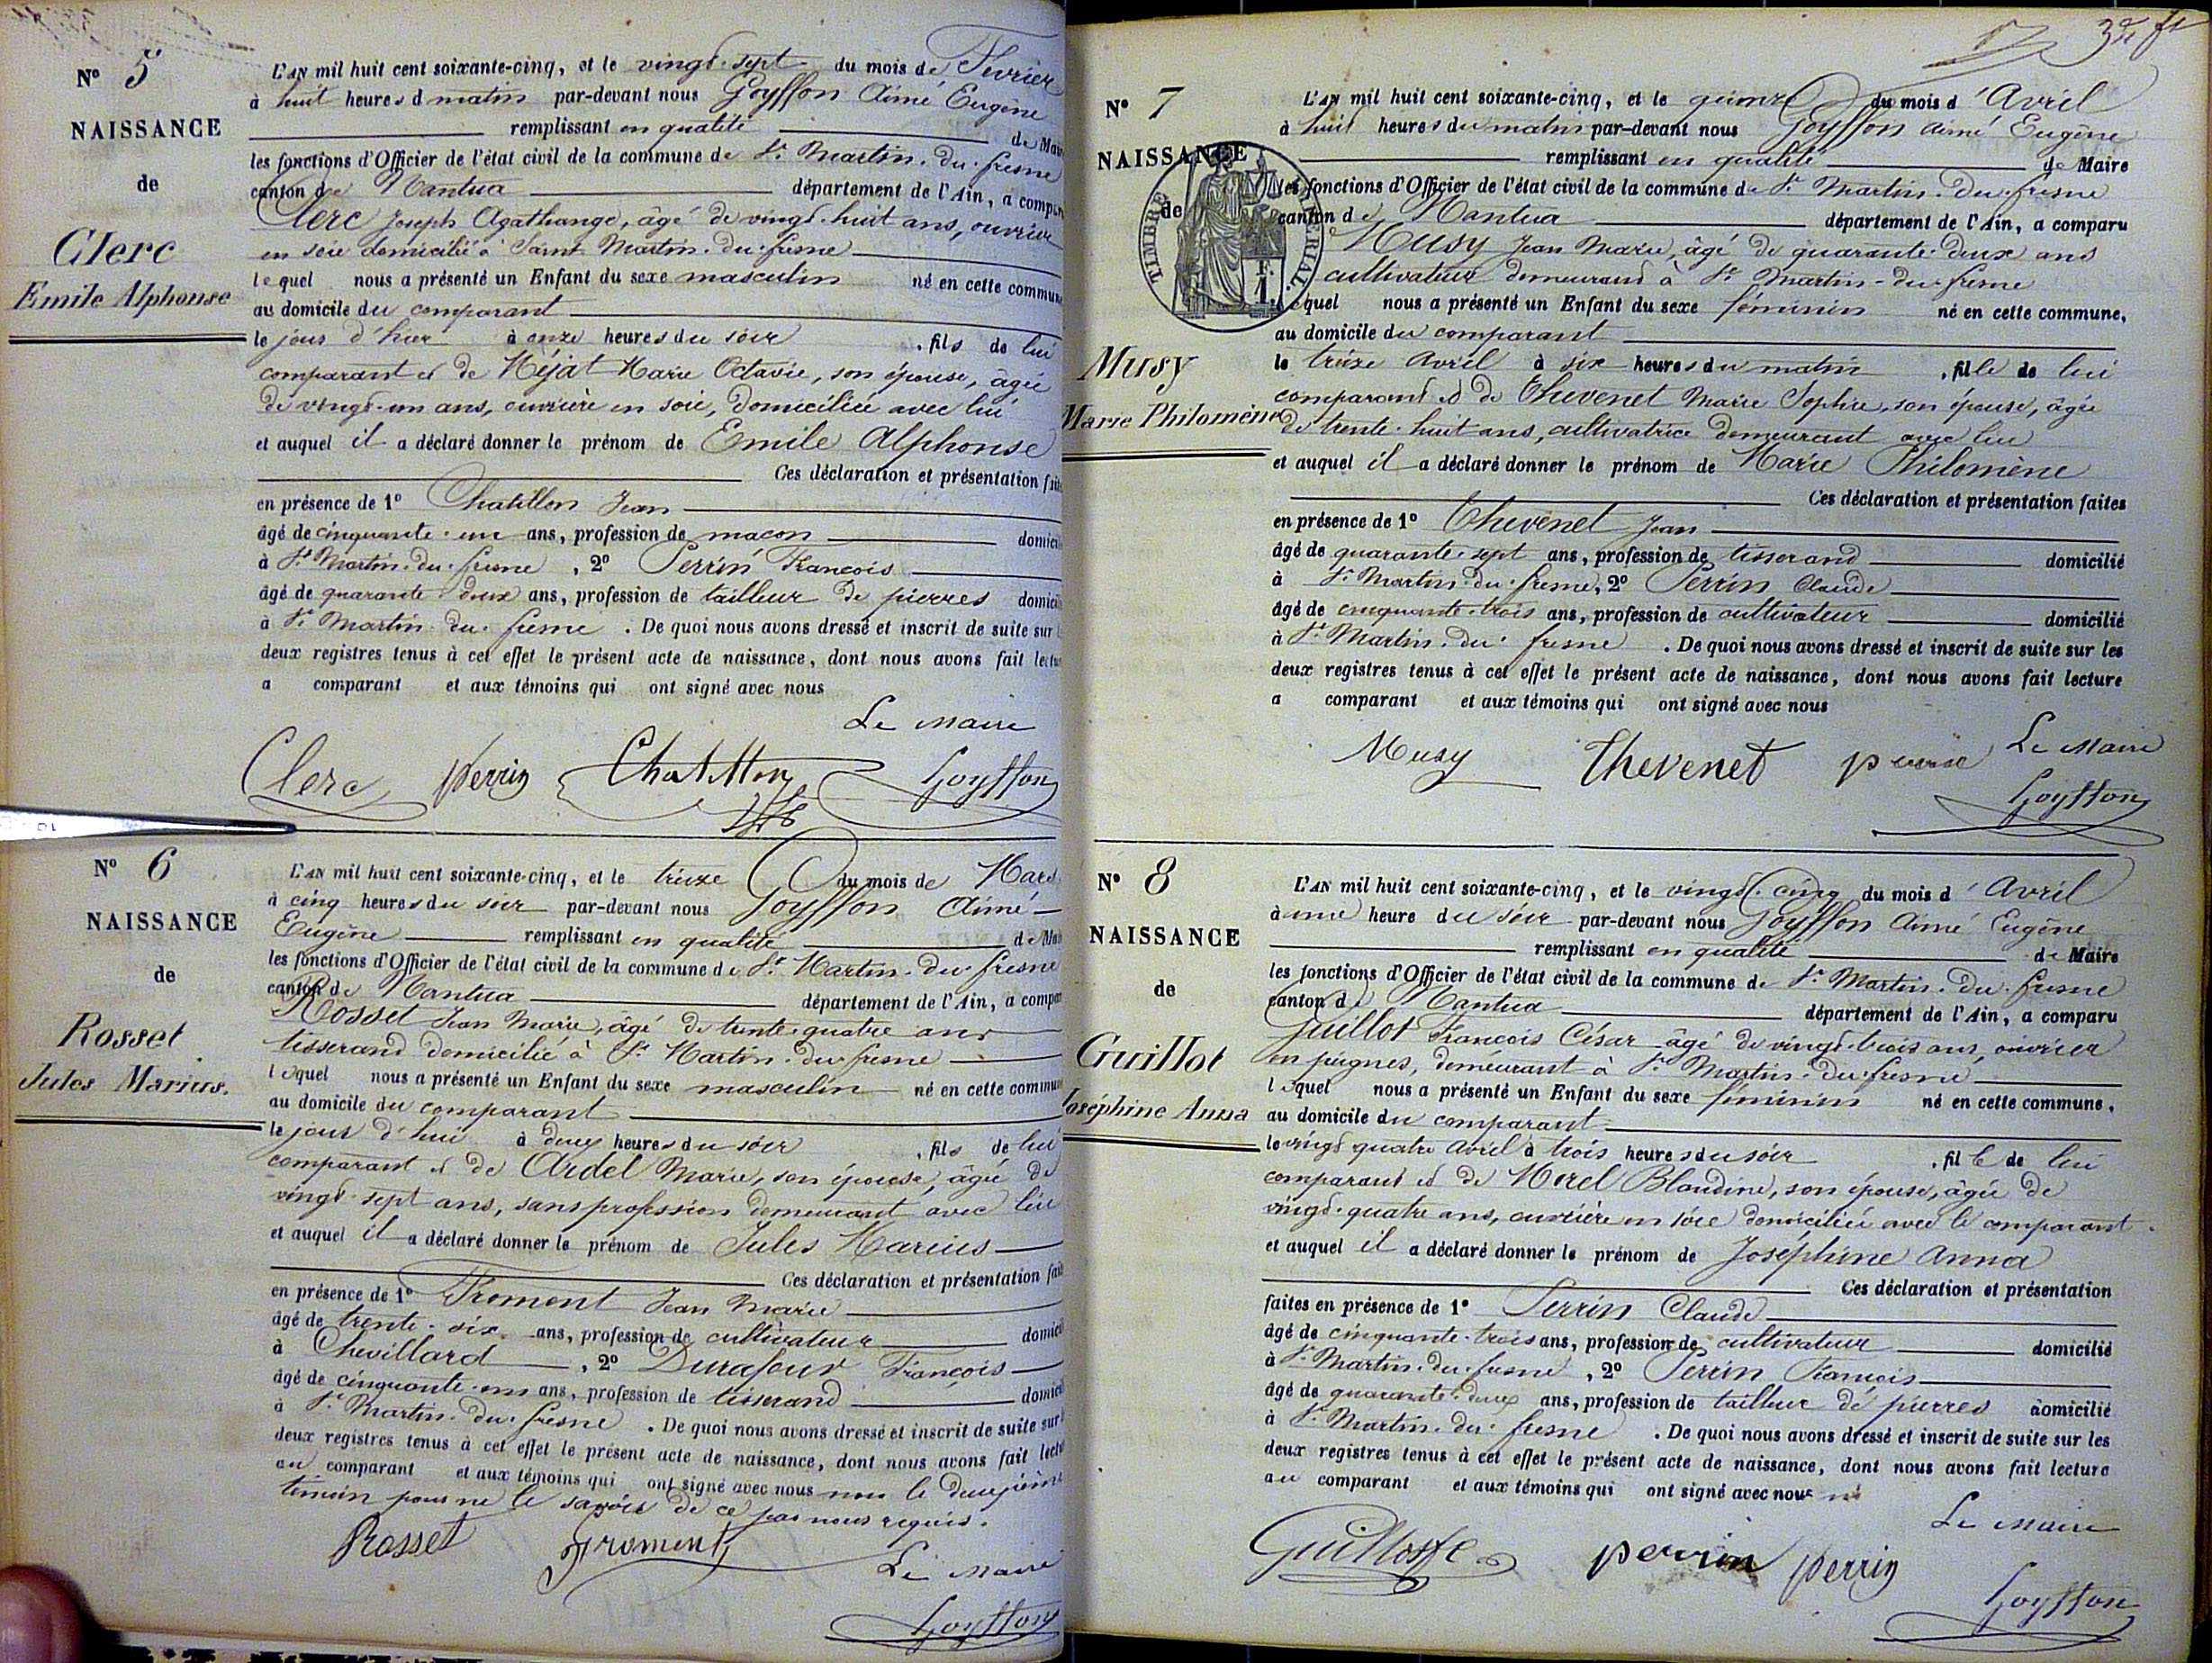 N° 5
NAISSANCE
de
Clerc
Emile Alphonse
L'AN mil huit cent soixante-cinq, et le vingt-sept du mois de Février
à huit heures d matin par-devant nous Goyffon Aimé Eugène
remplissant en qualité de Maire
les fonctions d'Officier de l'état civil de la commune de St Martin-du-fresne
canton de Nantua département de l'Ain, a compar
Clerc Joseph Agathange, âgé de vingt-huit ans, ouvrier
en soie domicilié à Saint Martin-du-fresne
lequel nous a présenté un Enfant du sexe masculin né en cette commune
au domicile du comparant
le jour d'hier à onze heures du soir , fils de lui
comparant et de Méjat Marie Octavie, son épouse, âgée
de vingt-un ans, ouvrière en soie, domiciliée avec lui
et auquel il a déclaré donner le prénom de Emile Alphonse
Ces déclaration et présentation fait
en présence de 1° Chatillon Jean
âgé de cinquante-un ans, profession de maçon domici
à St Martin-du-fresne , 2° Perrin François
âgé de quarante-deux ans, profession de tailleur de pierres domici
à St Martin-du-fresne . De quoi nous avons dressé et inscrit de suite sur l
deux registres tenus à cet effet le présent acte de naissance, dont nous avons fait lectu
a comparant et aux témoins qui ont signé avec nous
Le Maire
Clerc Perrin Chatillon Goyffon
N° 6
NAISSANCE
de
Rosset
Jules Marius.
L'AN mil huit cent soixante-cinq, et le treize du mois de Mars
à cinq heures du soir par-devant nous Goyffon Aimé
Eugène remplissant en qualité de Mai
les fonctions d'Officier de l'état civil de la commune de St Martin-du-fresne
canton de Nantua département de l'Ain, a compar
Rosset Jean Marie, âgé de trente-quatre ans
tisserand domicilié à St Martin-du-fresne
lequel nous a présenté un Enfant du sexe masculin né en cette commun
au domicile du comparant
le jour d'hui à deux heures du soir , fils de lui
comparant et de Ardel Marie, son épouse, âgée de
vingt-sept ans, sans profession demeurant avec lui
et auquel il a déclaré donner le prénom de Jules Marius
Ces déclaration et présentation fait
en présence de 1° Froment Jean Marie
âgé de trente-six ans, profession de cultivateur domici
à Chevillard , 2° Durafour François
âgé de cinquante-un ans, profession de tisserand domici
à St Martin-du-fresne . De quoi nous avons dressé et inscrit de suite sur l
deux registres tenus à cet effet le présent acte de naissance, dont nous avons fait lectu
au comparant et aux témoins qui ont signé avec nous non le deuxième
témoin pour ne le savoir de ce par nous requis.
Rosset Froment Le Maire
Goyffon
32 ft
N° 7
NAISSANCE
de
TIMBRE IMPÉRIAL. 1 F.
Musy
Marie Philomène
L'AN mil huit cent soixante-cinq, et le quinze du mois d'Avril
à huit heures du matin par-devant nous Goyffon Aimé Eugène
remplissant en qualité de Maire
les fonctions d'Officier de l'état civil de la commune de St Martin-du-fresne
canton de Nantua département de l'Ain, a comparu
Musy Jean Marie, âgé de quarante-deux ans
cultivateur demeurant à St Martin-du-fresne
lequel nous a présenté un Enfant du sexe féminin né en cette commune,
au domicile du comparant
le treize Avril à six heures du matin , fille de lui
comparant et de Thevenet Marie Sophie, son épouse, âgée
de trente-huit ans, cultivatrice demeurant avec lui
et auquel il a déclaré donner le prénom de Marie Philomène
Ces déclaration et présentation faites
en présence de 1° Thevenet Jean
âgé de quarante-sept ans, profession de tisserand domicilié
à St Martin-du-fresne, 2° Perrin Claude
âgé de cinquante-trois ans, profession de cultivateur domicilié
à St Martin-du-fresne . De quoi nous avons dressé et inscrit de suite sur les
deux registres tenus à cet effet le présent acte de naissance, dont nous avons fait lecture
a comparant et aux témoins qui ont signé avec nous
Musy Thevenet Le Maire
Goyffon
N° 8
NAISSANCE
de
Guillot
Joséphine Anna
L'AN mil huit cent soixante-cinq, et le vingt-cinq du mois d'Avril
à une heure du soir par-devant nous Goyffon Aimé Eugène
remplissant en qualité de Maire
les fonctions d'Officier de l'état civil de la commune de St Martin-du-fresne
canton de Nantua département de l'Ain, a comparu
Guillot François César âgé de vingt-trois ans, ouvrier
en peignes, demeurant à St Martin-du-fresne
lequel nous a présenté un Enfant du sexe féminin né en cette commune,
au domicile du comparant
le vingt quatre Avril à trois heures du soir , fille de lui
comparant et de Morel Blandine, son épouse, âgée de
vingt-quatre ans, ouvrière en soie domiciliée avec le comparant.
et auquel il a déclaré donner le prénom de Joséphine Anna
Ces déclaration et présentation
faites en présence de 1° Perrin Claude
âgé de cinquante-trois ans, profession de cultivateur domicilié
à St Martin-du-fresne , 2° Perrin François
âgé de quarante-deux ans, profession de tailleur de pierres domicilié
à St Martin-du-fresne . De quoi nous avons dressé et inscrit de suite sur les
deux registres tenus à cet effet le présent acte de naissance, dont nous avons fait lecture
au comparant et aux témoins qui ont signé avec nous
Le Maire
Guillot fc perrin Perrin
Goyffon